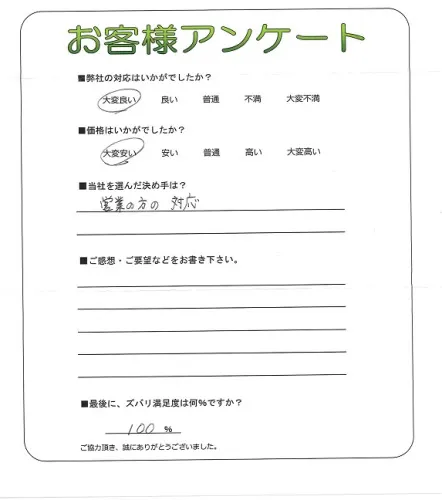 お客様アンケート
■弊社の対応はいかがでしたか？
大変良い 良い 普通 不満 大変不満
■価格はいかがでしたか？
大変安い 安い 普通 高い 大変高い
■当社を選んだ決め手は？
営業の方の 対応
■ご感想・ご要望などをお書き下さい。
■最後に、ズバリ満足度は何%ですか？
100 %
ご協力頂き、誠にありがとうございました。